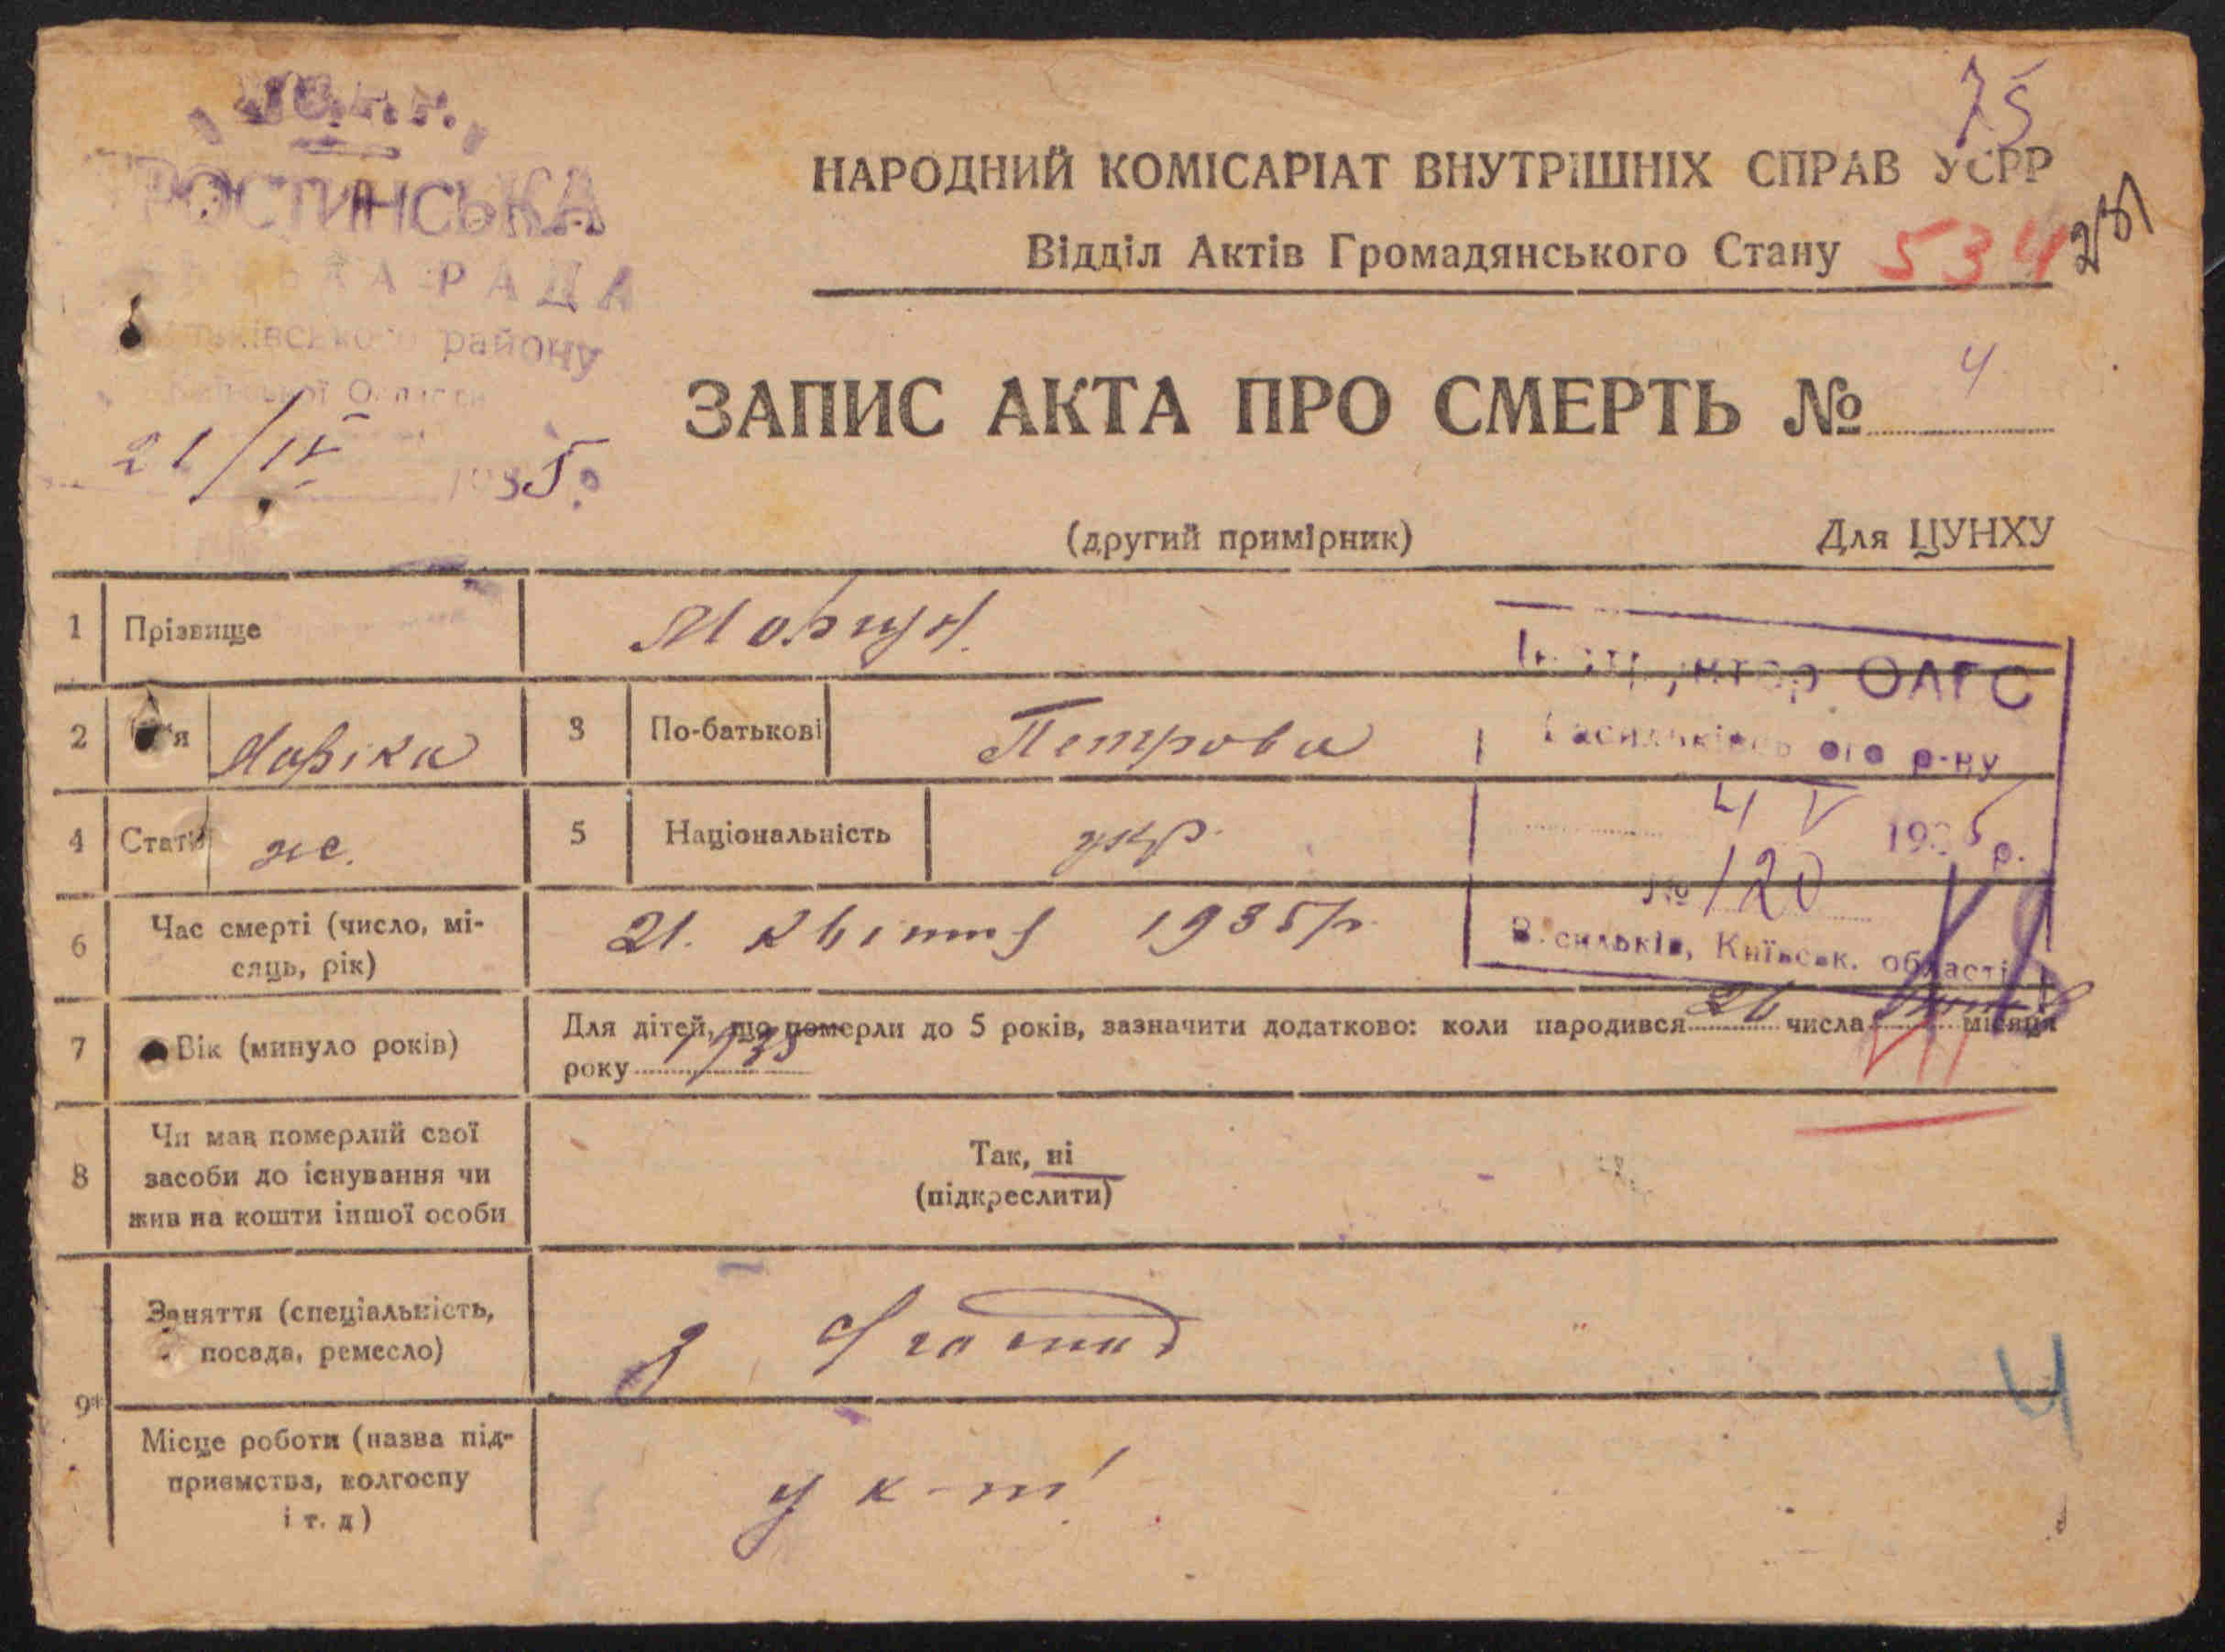 75
НАРОДНИЙ КОМІСАРІАТ ВНУТРІШНІХ СПРАВ УСРР
РОСТИНСЬКА
Відділ Актів Громадянського Стану 534
РАДА
району
ЗАПИС АКТА ПРО СМЕРТЬ № 4
21/IV 1935
(другий примірник) Для ЦУНХУ
1 Прізвище
Інструктор ОАГС
2 Ім'я Марійка 3 По-батькові Петрова
Васильківського р-ну
4 Стать жс. 5 Національність укр.
4 V 1935 р.
№ 120
6 Час смерті (число, мі-
сяць, рік) 21. квітня 1935 р.
Васильків, Київськ. області
7 Вік (минуло років) Для дітей, що померли до 5 років, зазначити додатково: коли народився 26 числа місяця
року 1935
8 Чи мав померлий свої
засоби до існування чи
жив на кошти іншої особи
Так, ні
(підкреслити)
9* Заняття (спеціальність,
посада, ремесло)
4
Місце роботи (назва під-
приємства, колгоспу
і т. д)
у к-ті